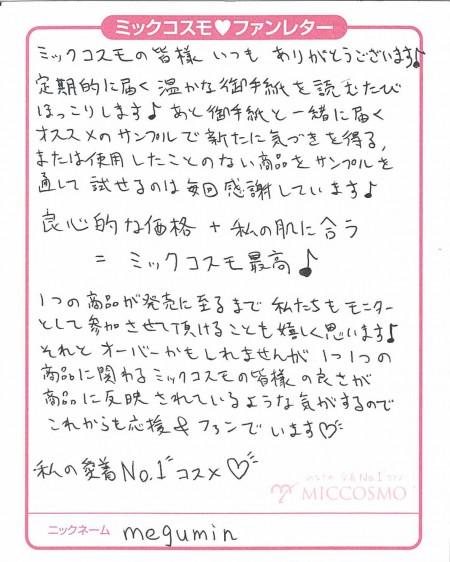 ミックコスモ♥ファンレター
ミックコスモの皆様 いつも ありがとうございます♪
定期的に届く温かな御手紙を読むたび
ほっこりします♪ あと御手紙と一緒に届く
オススメのサンプルで新たに気づきを得る、
または使用したことのない商品をサンプルを
通して試せるのは毎回感謝しています♪
良心的な価格 + 私の肌に合う
= ミックコスモ最高♪
1つの商品が発売に至るまで私たちもモニター
として参加させて頂けることも嬉しく思います♪
それと オーバーかもしれませんが 1つ1つの
商品に関わるミックコスモの皆様の良さが
商品に反映されているような気がするので
これからも応援&ファンでいます♡
私の愛着No.1コスメ♡
MICCOSMO
ニックネーム megumin